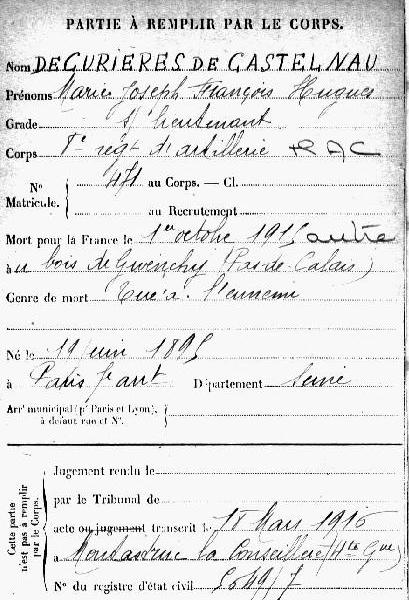 PARTIE À REMPLIR PAR LE CORPS.
Nom DE CURIÈRES DE CASTELNAU
Prénoms Marie Joseph François Hugues
Grade S/ lieutenant
Corps 7e régt d'artillerie RAC
No Matricule. 471 au Corps. — Cl.
au Recrutement
Mort pour la France le 1er octobre 1915 autre
à u bois de Givenchy (Pas-de-Calais)
Genre de mort Tué à l'ennemi
Né le 19 juin 1895
à Paris Département Seine
Arrt municipal (pr Paris et Lyon), à défaut rue et No.
Cette partie n'est pas à remplir par le Corps.
Jugement rendu le
par le Tribunal de
acte ou jugement transcrit le 18 Mars 1916
à Montastruc la Conseillère (Hte Gne)
No du registre d'état civil